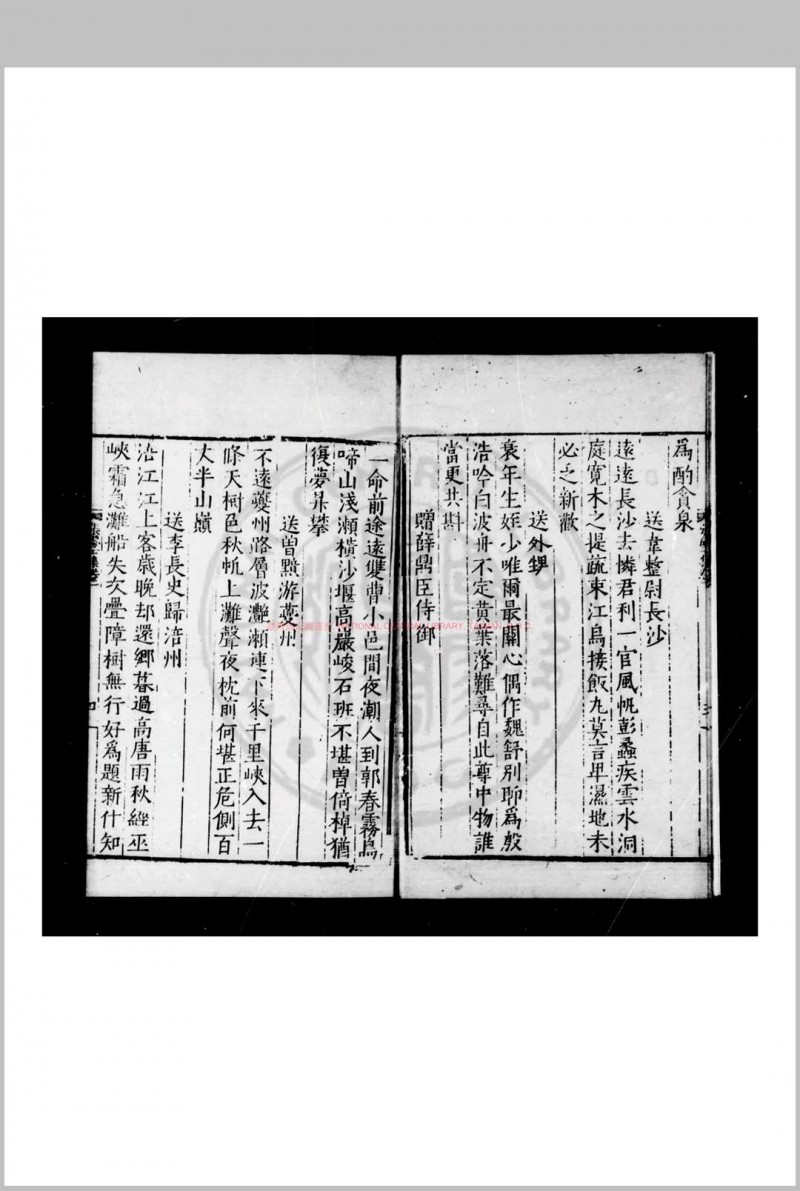 為酌貪泉
送韋整尉長沙
遠遠長沙去憐君利一官風帆彭蠡疾雲水洞
庭寬木之提疏束江鳥接飯丸莫言卑濕地未
必乏新歡
送外甥
衰年生姪少唯爾最關心偶作魏舒別聊為殷
浩吟白波舟不定黃葉落難尋自此尊中物誰
當更共斟
贈薛鼎臣侍御
一命前途遠雙曹小邑間夜潮人到郭春霧鳥
啼山淺瀬橫沙堰高巖峻石班不堪曽倚棹猶
復夢昇攀
送曽黙游夔州
不遠夔州路層波灧瀬連下來千里峽入去一
條天樹色秋帆上灘聲夜枕前何堪正危側百
丈半山巔
送李長史歸涪州
沿江江上客歲晚却還鄉暮過高唐雨秋經巫
峽霜急灘船失次疊障樹無行好為題新什知